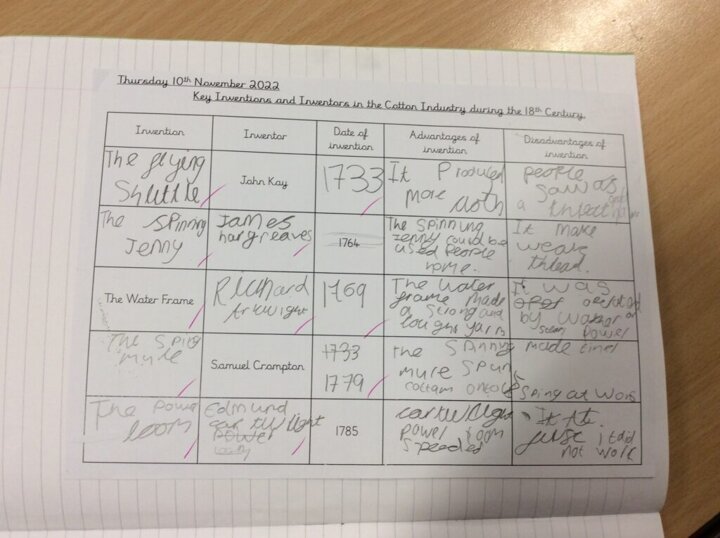 Thursday 10th November 2022
Key Inventions and Inventors in the Cotton Industry during the 18th Century.
Invention
Inventor
Date of
invention
Advantages of
invention
Disadvantages of
invention
The flying
Shuttle
John Kay
1733
It Produced
more cloth
people
saw as
a threat
The Spinning
Jenny
James
hargreaves
1764
The Spinning
Jenny could be
used people
home.
It make
weak
thread.
The Water Frame
Richard
Arkwright
1769
The water
frame made
a strong and
yarn
It was
by water or
power
The Spin
mule
Samuel Crompton
1733
1779
the Spinning
mule spun
made tired
at work
The Power
loom
Edmund
cartwright
power
1785
cartwright
power loom
speeded
It
just it did
not work